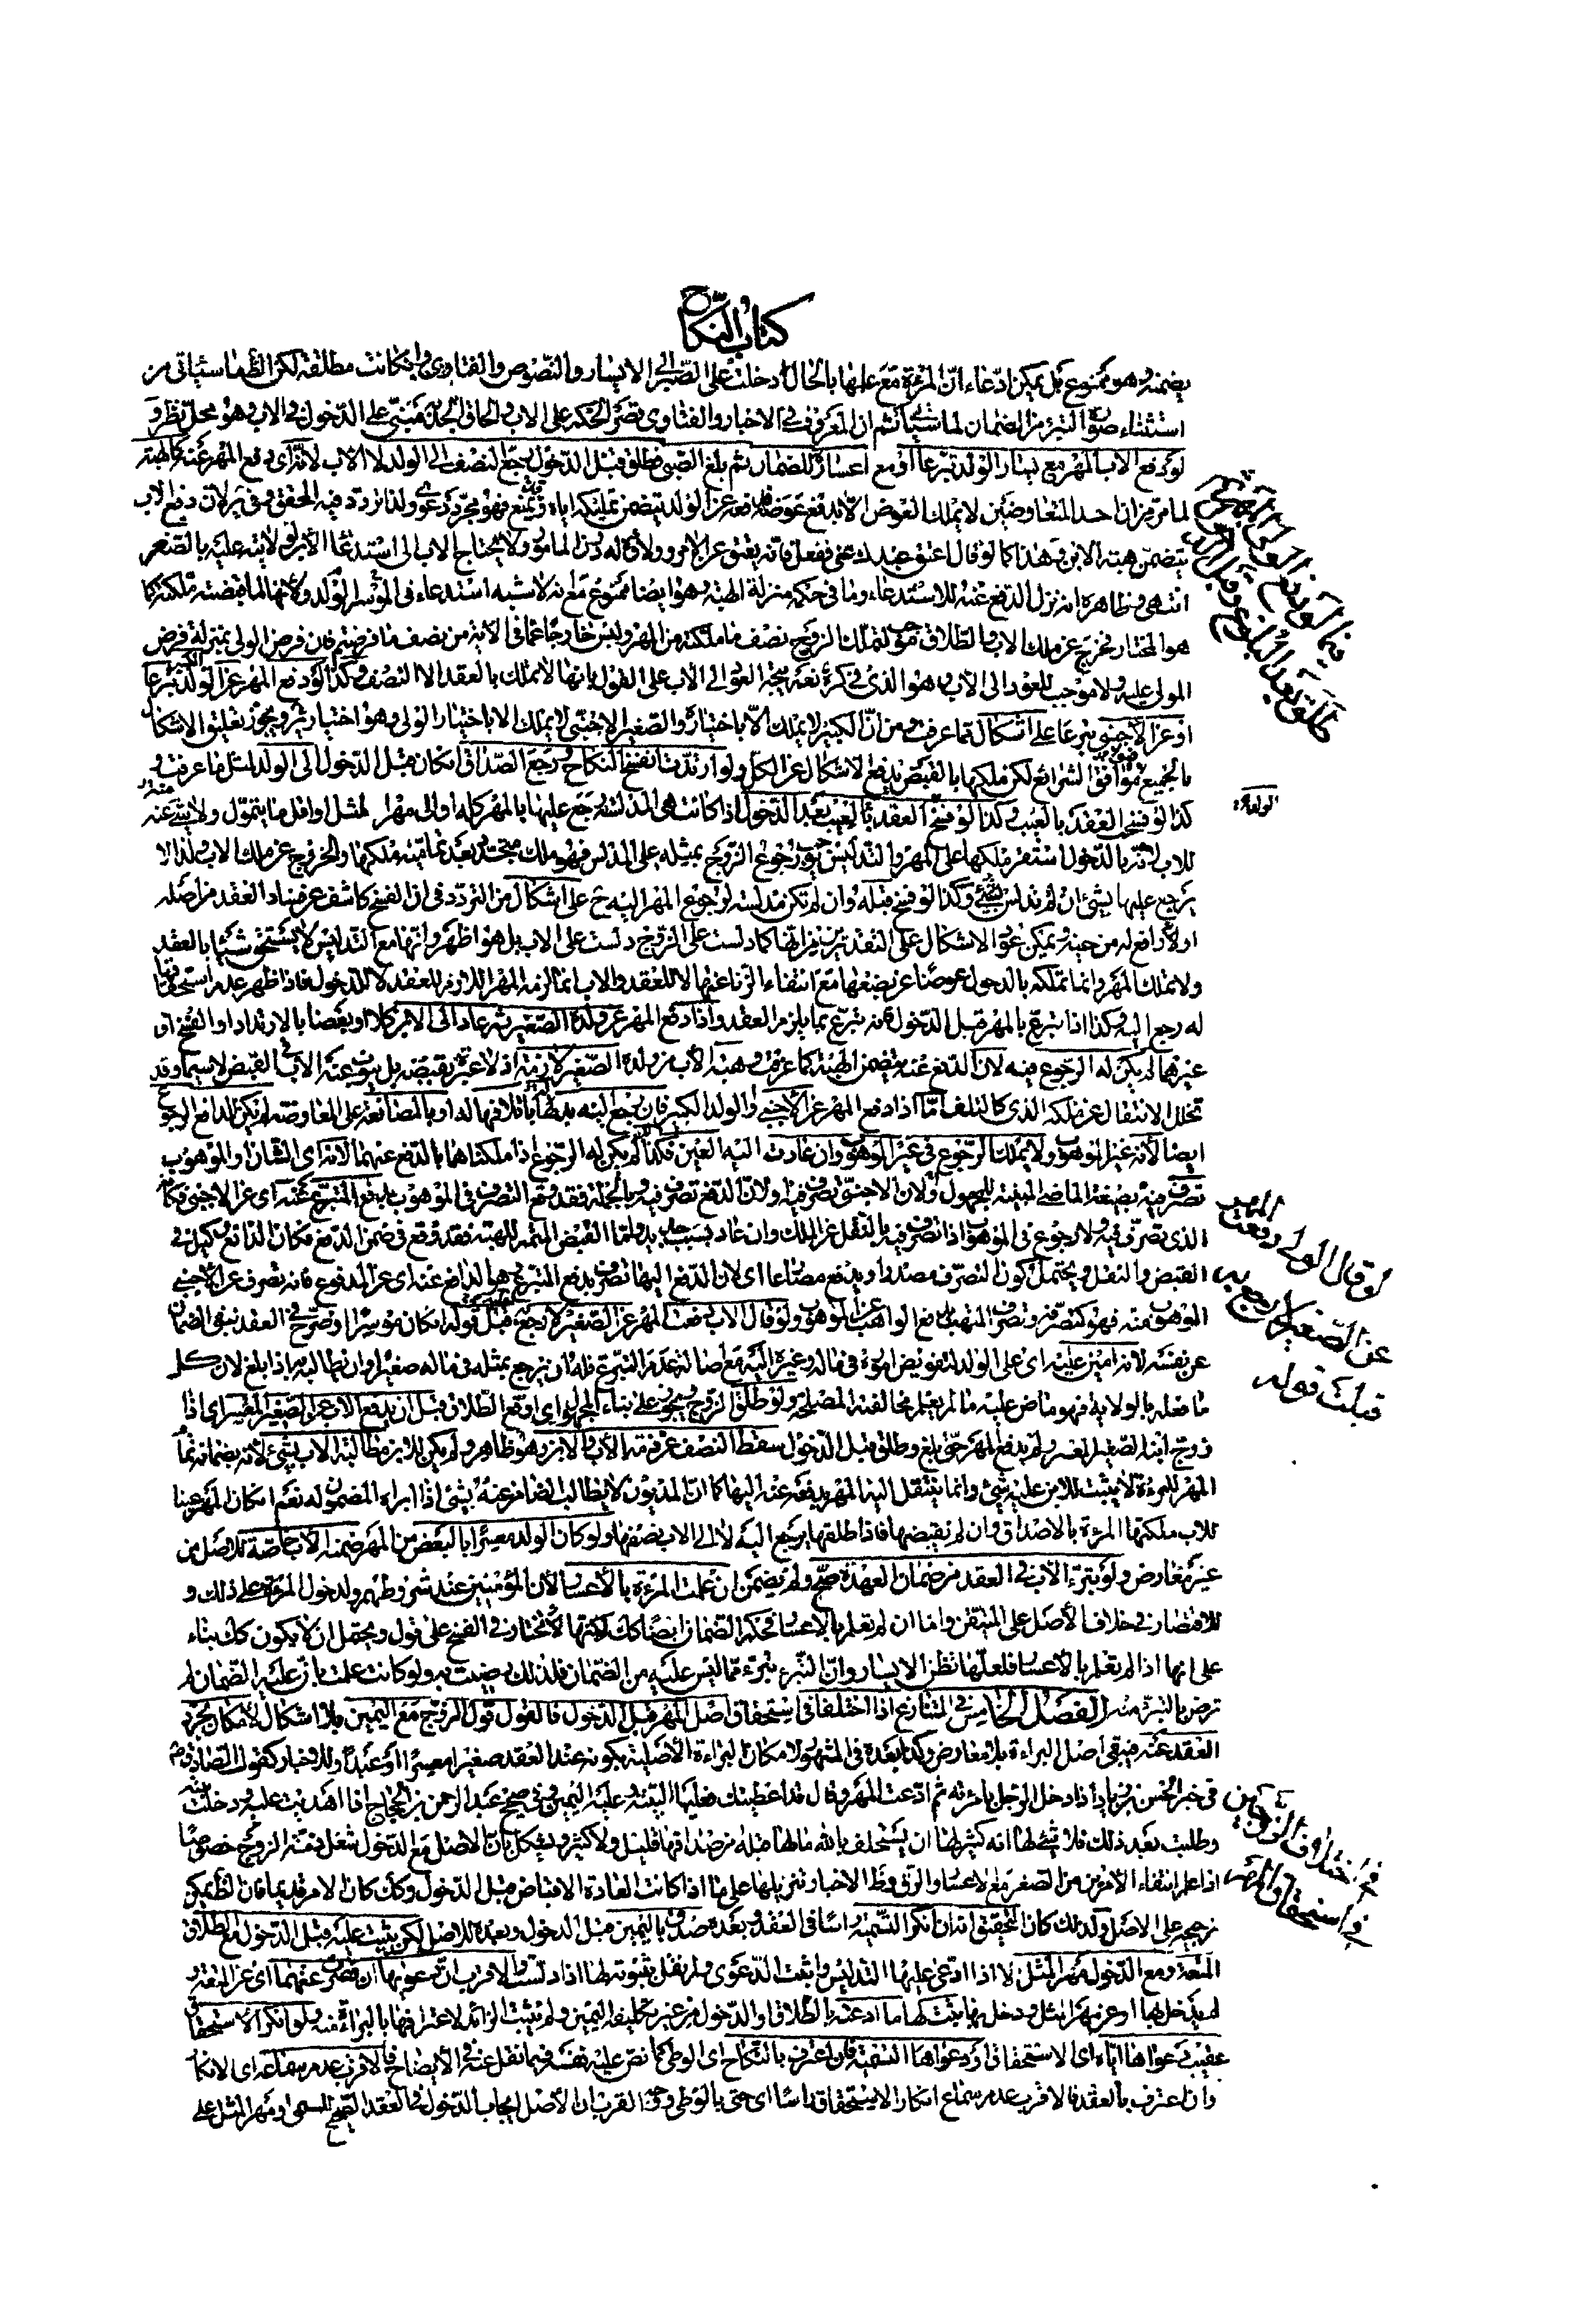 كتاب النكاح
يضمنه وهو ممنوع بل يمكن ادعاء ان المرءة مع علمها بالحال دخلت على الصبر الى الايسار والنصوص والفتاوى وان كانت مطلقة لكن الظ ما سياتى من
استثناء صورة التبرء من الضمان لما سياتى ثم ان المعروف في الاخبار والفتاوى قصر الحكم على الاب والحاق الجد مبنى على الدخول في الاب وهو محل نظر و
لو دفع الاب المهر مع يسار الولد تبرعا او مع اعساره للضمان ثم بلغ الصبى فطلق قبل الدخول رجع النصف الى الولد لا الاب لانه اى دفع المهر عنه كالهبة
لما مر من ان احد المتعاوضين لا يملك العوض الا بدفع عوضه فدفعه عن الولد يتضمن تمليكه اياه وفيه منع فهو مجرد دعوى ولذا تردد فيه المحقق وفى ير لان دفع الاب
يتضمن هبة الابن وهذا كما لو قال اعتق عبدك عنى ففعل فانه يعتق عن الامر وولاؤه له دون المامور ولا يحتاج الاب الى استدعاء الابن لولايته عليه بالصغر
انتهى وظاهره انه نزل الدفع عنه للاستدعاء وما في حكمه منزلة الهبة وهو ايضا ممنوع مع انه لا شبهة استدعاء في الموسر الولد ولانها لما قبضته ملكته كما
هو المختار فخرج عن ملك الاب والطلاق موجب لتملك الزوج نصف ما ملكته من المهر وليس خارجا عما في الاية من نصف ما فرضتم فان فرض الولى بمنزلة فرض
المولى عليه ولا موجب للعود الى الاب وهو الذى في كره نعم يتجه العود الى الاب على القول بانها لا تملك بالعقد الا النصف وكذا لو دفع المهر عن الولد الكبير تبرعا
او عن الاجنبى تبرعا على اشكال مما عرفت ومن ان الكبير لا يملك الا باختياره والصغير الاجنبى لا يملك الا باختيار الولى وهو اختيار ير ويجوز تعليق الاشكال
بالجميع لكن ملكها بالقبض يدفع الاشكال عن الكل ولو ارتدت انفسخ النكاح ورجع الصداق ان كان قبل الدخول الى الولد لمثل ما عرفت و
كذا لو فسخ العقد بالعيب وكذا لو فسخ العقد بالعيب بعد الدخول اذا كانت هى المدلسة يرجع عليها بالمهر كله او الى مهر المثل او اقل ما يتمول ولا شئ عنه
للاب لانه بالدخول استقر ملكها على المهر والتدليس موجب رجوع الزوج بمثله على المدلس فهو ملك متجدد بعد تمامية ملكها والخروج عن ملك الاب ولذا لا
يرجع عليها بشئ ان لم تدلس بشئ وكذا لو فسخ قبله وان لم تكن مدلسة لرجوع المهر اليه ح على اشكال من التردد في ان الفسخ كاشف عن فساد العقد من اصله
او لا رافع له من حينه ويمكن عود الاشكال على التقديرين فانها كما دلست على الزوج دلست على الاب بل هو اظهر وانها مع التدليس لا يستحق شيئا بالعقد
ولا تملك المهر وانما تملكه بالدخول عوضا عن بضعها مع انتفاء الزنا عنها لا للعقد والاب انما لزمه المهر اللازم للعقد لا للدخول فاذا ظهر عدم استحقاقها
له رجع اليه وكذا اذا تبرع بالمهر قبل الدخول فانه تبرع بما يلزم العقد واذا دفع المهر عن ولده الصغير تبرعا ثم عاد الى الابن كلا او بعضا بالارتداد او الفسخ او
غيرهما لم يكن له الرجوع فيه لان الدفع عنه يتضمن الهبة كما عرفت وهبة الاب من ولده الصغير لازمة اذ لا عبرة بقبضه بل ينوب عنه الاب في القبض لا سيما وقد
تخلل الانتقال عن ملكه الذى كالتلف اما اذا دفع المهر عن الاجنبى والولد الكبير فان رجع اليه بدلها باتلافها له او بالمصانعة على المعاوضة لم يكن للدافع الرجوع
ايضا لانه غير الموهوب ولا يملك الرجوع في غير الموهوب وان عادت اليه العين فكذا لم يكن له الرجوع اذا ملكناهما بالدفع عنهما لانه اى الشان او الموهوب
تصرف فيه بصيغة الماضى المبنية للمجهول ولان الاجنبى تصرف فيه ولان الدفع تصرف فيه وبالجملة فقد وقع التصرف في الموهوب بدفع المتبرع عنه اى عن الاجنبى فكأنه
الذى تصرف فيه ولا رجوع في الموهوب اذا تصرف فيه بالنقل عن الملك وان عاد بسبب جديد ولما القبض المتمم للهبة فقد وقع في ضمن الدفع فكان الدافع وكيل في
القبض والنقل ويحتمل كون التصرف مصدرا وبدفع مضارعا اى لان الدفع اليها تصرف بدفع المتبرع وهما الدافع عنه اى عن المدفوع فانه تصرف عن الاجنبى
الموهوب منه فهو كتصرفه وتصرف المتهب يدفع الواهب عن الموهوب ولو قال الاب دفعت المهر عن الصغير لارجع قبل قوله ان كان موسرا او صرح في العقد بنفى الضمان
عن نفسه لانه امين عليه اى على الولد لتفويض اموره في ماله وغيره اليه مع اصالة عدم التبرع فله ان يرجع بمثله في ماله صغيرا وان يطالبه به اذا بلغ لان كل
ما فعله بالولاية فهو ماض عليه ما لم يعلم مخالفته المصلحة ولو طلق الزوج ويجوز على بناء المجهول اى اوقع الطلاق قبل ان يدفع الاب عن الصغير المعسر اى اذا
زوج ابنه الصغير المعسر ولم يدفع المهر حتى بلغ وطلق قبل الدخول سقط النصف عن ذمة الاب والابن وهو ظاهر ولم يكن للابن مطالبة الاب بشئ لانه بضمانه تمام
المهر للمرءة لا يثبت للابن عليه شئ وانما ينتقل اليه المهر بدفعه عنه اليها كما ان المديون لا يطالب الضامن عنه بشئ اذا ابراه المضمون له نعم ان كان المهر عينا
للاب ملكتها المرءة بالاصداق وان لم تقبضها فاذا طلقها يرجع اليه لا الى الاب نصفها ولو كان الولد معسرا بالبعض من المهر ضمنه الاب خاصة للاصل من
غير معارض ولو تبرء الاب في العقد من ضمان العهدة صح ولم يضمن ان علمت المرءة بالاعسار لان المؤمنين عند شروطهم ولدخول المرءة على ذلك و
للاقتصار في خلاف الاصل على المتيقن واما ان لم تعلم بالاعسار فحكم الضمان ايضا كك لكنها لا تختار في الفسخ على قول ويحتمل ان لا يكون كك بناء
على انها اذا لم تعلم بالاعسار فلعلها تظن الايسار وان التبرء تبرء مما ليس عليه من الضمان فلذلك رضيت به ولو كانت علمت بان عليه الضمان لم
ترض بالتبرء منه الفصل الخامس في التنازع اذا اختلفا في استحقاق اصل المهر قبل الدخول فالقول قول الزوج مع اليمين بلا اشكال لامكان تجرد
العقد عنه فيبقى اصل البراءة بلا معارض وكذا بعده في المشهور لامكان البراءة الاصلية بكونه عند العقد صغيرا معسرا او عبدا وللاخبار كقول الصادق ع
في خبر الحسن بن زياد اذا دخل الرجل بامرئته ثم ادعت المهر وقال قد اعطيتك فعليها البينة وعليه اليمين وفى صحيح عبد الرحمن بن الحجاج اذا اهديت عليه ودخلت بيته
وطلبت بعد ذلك فلا شئ لها انه كثير لها ان يستحلف بالله ما لها قبله من صداقها قليل ولا كثير ويشكل بان الاصل مع الدخول شغل ذمة الزوج خصوصا
اذا علم انتفاء الامرين من الصغر مع الاعسار والرق وظ الاخبار تنزيلها على ما اذا كانت العادة الاقباض قبل الدخول وكك كان الامر قديما فان الظ يمكن
ترجيحه على الاصل ولذلك كان التحقيق انه ان انكر التسمية راسا في العقد وبعده صدق باليمين قبل الدخول وبعده للاصل لكن يثبت عليه قبل الدخول مع الطلاق
المتعة ومع الدخول مهر المثل لا اذا ادعى عليها التدليس واثبت الدعوى ولم نقل بثبوته لها اذا دلست والاقرب ان دعويها ان قصرت عنهما اى عن المتعة
لم يدخل بها او عن مهر المثل ودخل بها يثبت لها ما ادعته بالطلاق او الدخول من غير تحليف اليمين ولم يثبت الزائد لاعترافها بالبراءة منه ولو انكر الاستحقاق
عقيب دعواها اياه اى الاستحقاق او دعواها التسمية فان اعترف بالنكاح اى الوطى كما نص عليه نفسه فيما نقل عنه في الايضاح فالاقرب عدم سماعه اى الانكار
وان اعترف بالعقد فالاقرب عدم سماع انكار الاستحقاق راسا اى حتى بالوطى وجه القرب ان الاصل ايجاب الدخول في العقد الصحيح للمسمى او مهر المثل على
فيما لو دفع الاب المهر
فطلق بعد البلوغ وقبل الدخول
لو قال الولى دفعت المهر
عن الصغير لارجع به
قبلت قوله
في اختلاف الزوجين
في استحقاق المهر